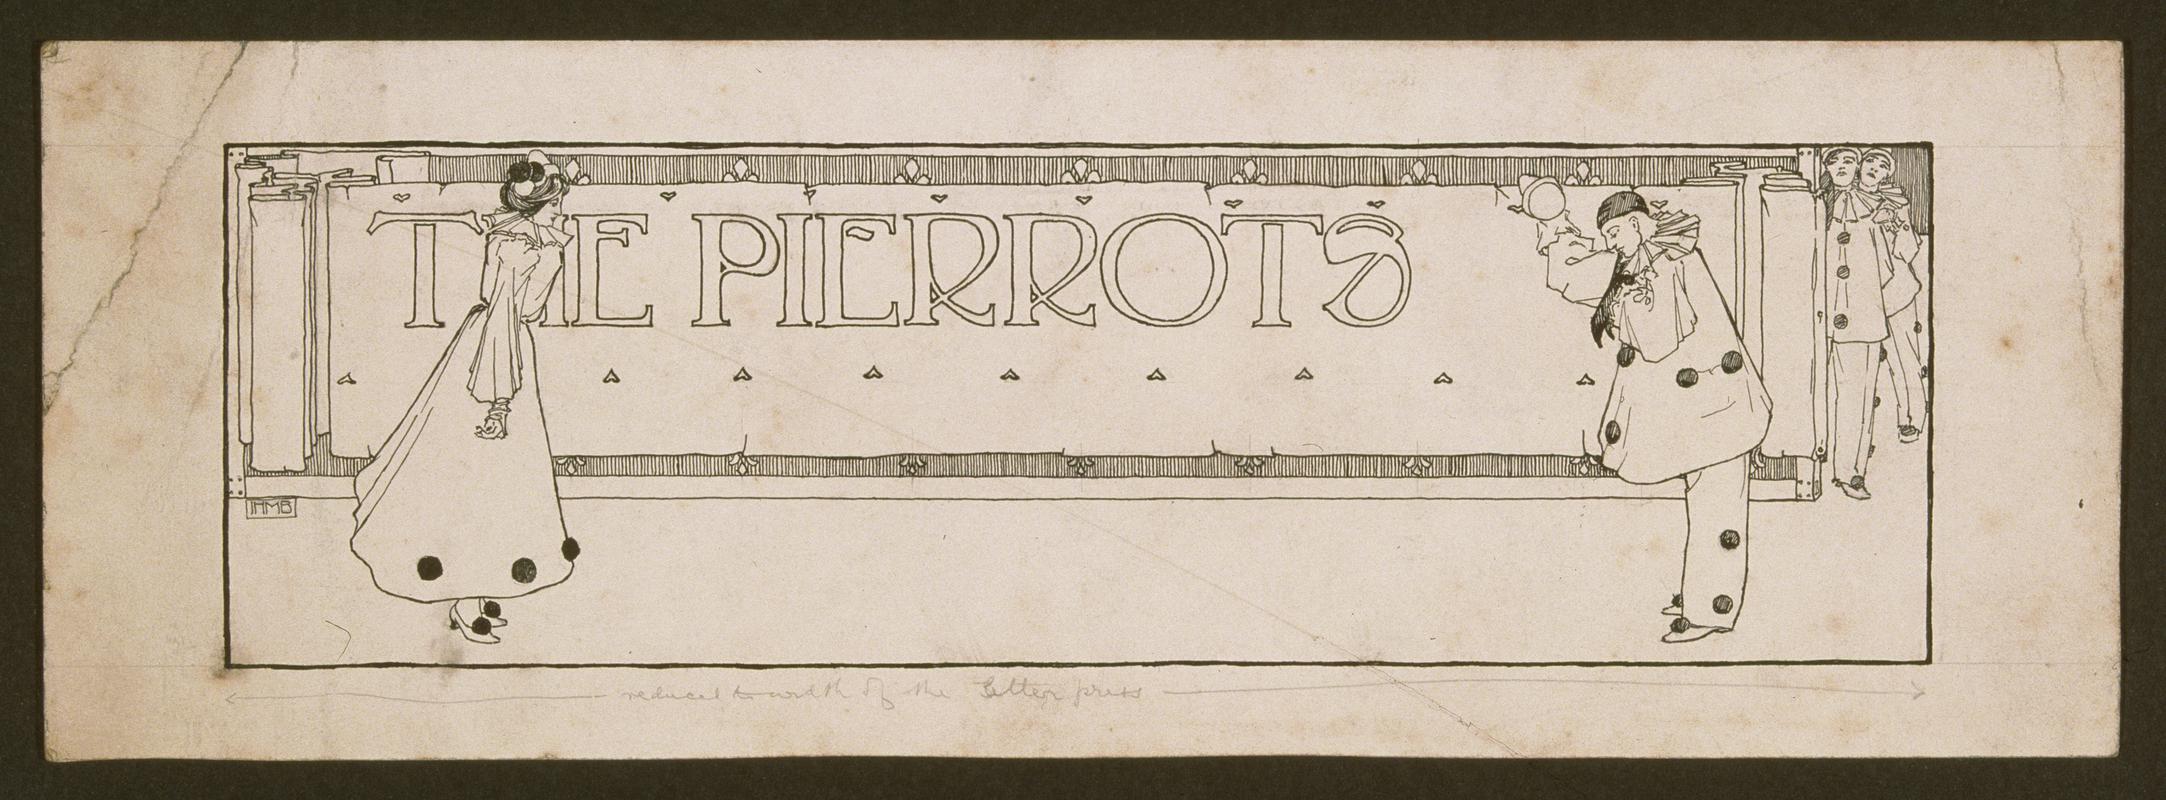 THE PIERROTS
JHMB
reduced to width of the Letter press